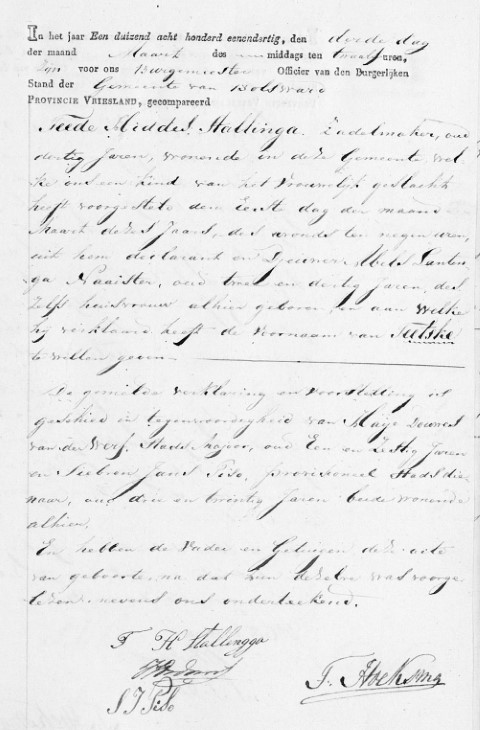 In het jaar Een duizend acht honderd eenendertig, den derde dag
der maand Maart des middags ten twaalf uren,
Zijn voor ons Burgemeester Officier van den Burgerlijken
Stand der Gemeente van Bolsward
PROVINCIE VRIESLAND, gecompareerd
Feede Hiddes Stallinga. Zadelmaker, oud
dertig Jaren, wonende in deze Gemeente, wel
ke ons een kind van het Vrouwelijk geslacht
heeft voorgesteld den Eerste dag der maand
Maart dezes Jaars, des avonds ten negen uren,
uit hem declarant en Abels
Naaister, oud twee en dertig Jaren, des
zelfs huisvrouw alhier geboren, en aan welke
hij verklaard heeft de Voornaam van Feetske
te willen geven.
De gemelde verklaring en voorstelling is
geschied in tegenwoordigheid van Douwes
van der Werf, Stads Majoor, oud Een en Zestig Jaren
en Siebren Jans Piso, provisioneel Stads die
naar, oud drie en twintig Jaren beide wonende
alhier.
En hebben de Vader en Getuigen deze acte
van geboorte, na dat hun dezelve was voorge
lezen, nevens ons onderteekend.
F H Stallingga
F. Hoeksma
S J Piso